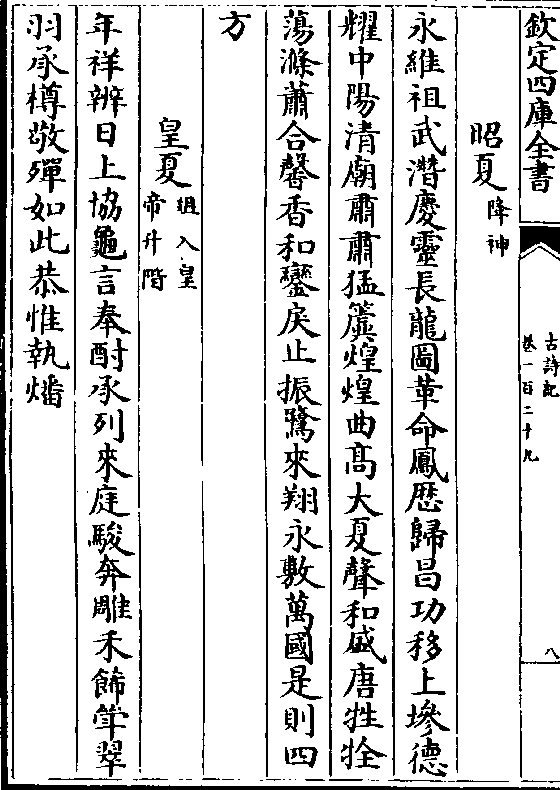 欽定四庫全書
古詩紀
卷一百二十九
八
昭夏降神
永維祖武潛慶靈長龍圖革命鳳歴歸昌功移上墋德
耀中陽清廟肅肅猛簴煌煌曲髙大夏聲和盛唐牲牷
蕩滌蕭合馨香和鑾戾止振鷺來翔永敷萬國是則四
方
皇夏俎入皇帝升階
年祥辨日上協龜言奉酎承列來庭駿奔雕禾飾斝翠
羽承樽敬殫如此恭惟執燔